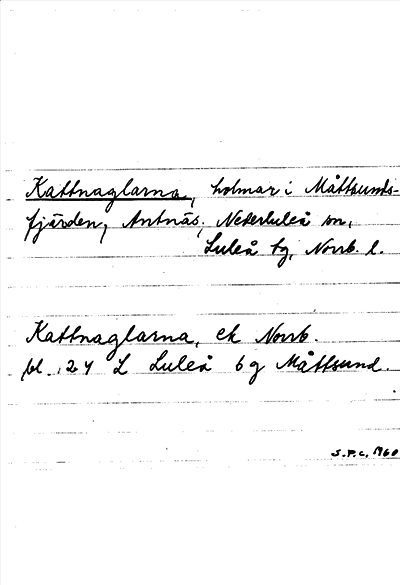 Kattnaglarna, holmar i Måttsunds-
fjärden, Antnäs, Nederluleå sn,
Luleå tg, Norrb. l.
Kattnaglarna, ek Norrb.
bl. 24 L Luleå 6 g Måttsund.
S.P.C. 1960